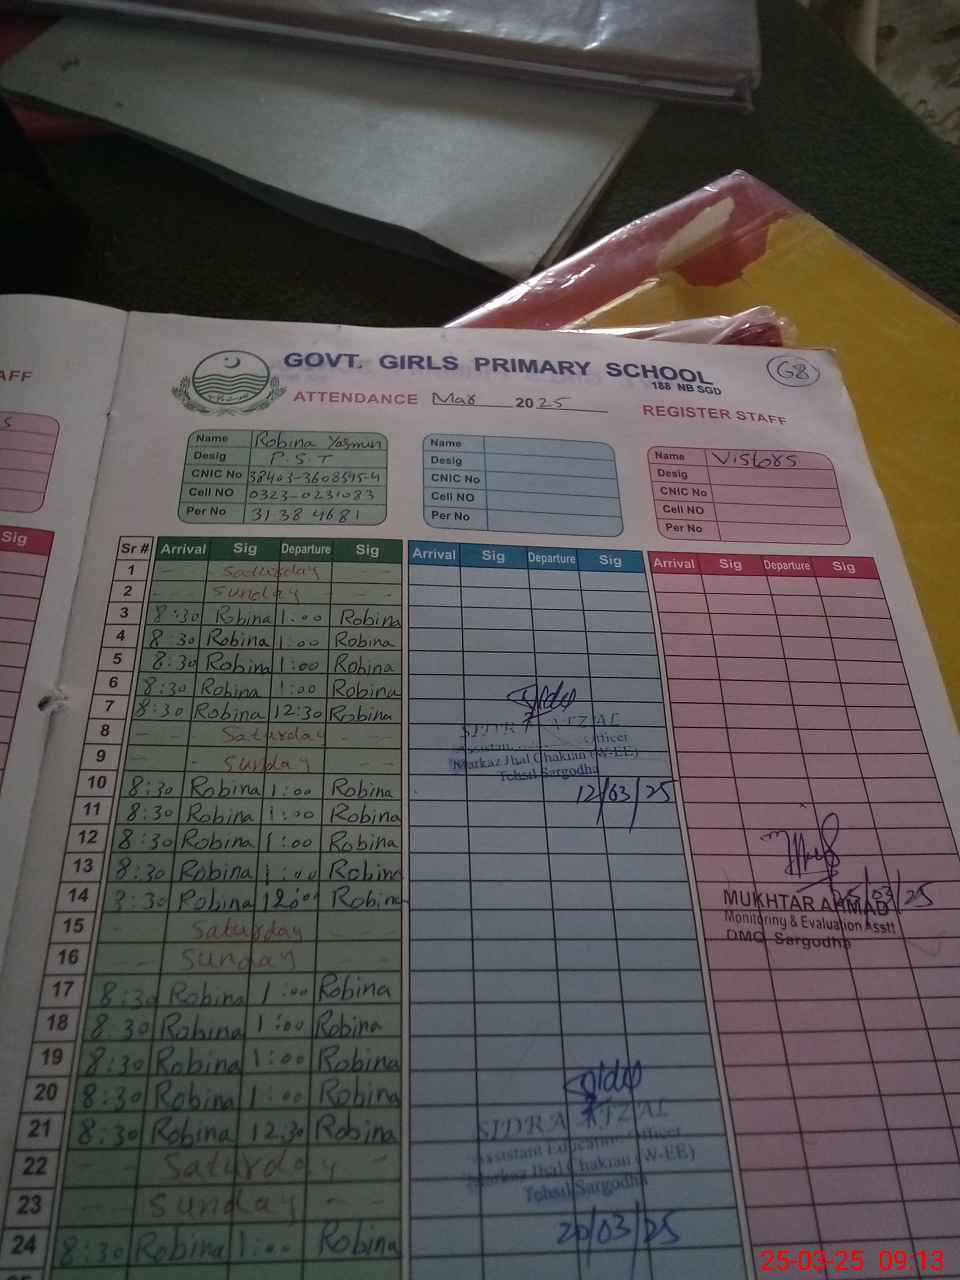 GOVT. GIRLS PRIMARY SCHOOL
188 NB SGD
68
AFF
ATTENDANCE Mar 2025
REGISTER STAFF
s
Name Robina Yasmun
Desig P.S.T
CNIC No 38403-3608595-4
Cell NO 0323-0231083
Per No 31384681
Name
Desig
CNIC No
Cell NO
Per No
Name Vistors
Desig
CNIC No
Cell NO
Per No
Sig
Sr # Arrival Sig Departure Sig Arrival Sig Departure Sig Arrival Sig Departure Sig
1 Saturday
2 Sunday
3 8:30 Robina 1:00 Robina
4 8:30 Robina 1:00 Robina
5 8:30 Robina 1:00 Robina
6 8:30 Robina 1:00 Robina
7 8:30 Robina 12:30 Robina
8 Saturday
9 Sunday
10 8:30 Robina 1:00 Robina
11 8:30 Robina 1:00 Robina
12 8:30 Robina 1:00 Robina
13 8:30 Robina 1:00 Robina
14 8:30 Robina 12:00 Robina
15 Saturday
16 Sunday
17 8:30 Robina 1:00 Robina
18 8:30 Robina 1:00 Robina
19 8:30 Robina 1:00 Robina
20 8:30 Robina 1:00 Robina
21 8:30 Robina 12:30 Robina
22 Saturday
23 Sunday
24 8:30 Robina 1:00 Robina
SIDRA AFZAL
Assistant Officer
Markaz Jhal Chakian (W-EE)
Tehsil Sargodha
12/03/25
25/03/25
MUKHTAR AHMAD
Monitoring & Evaluation Asstt
DMO Sargodha
SIDRA AFZAL
Assistant Education Officer
Markaz Jhal Chakian (W-EE)
Tehsil Sargodha
20/03/25
25-03-25 09:13